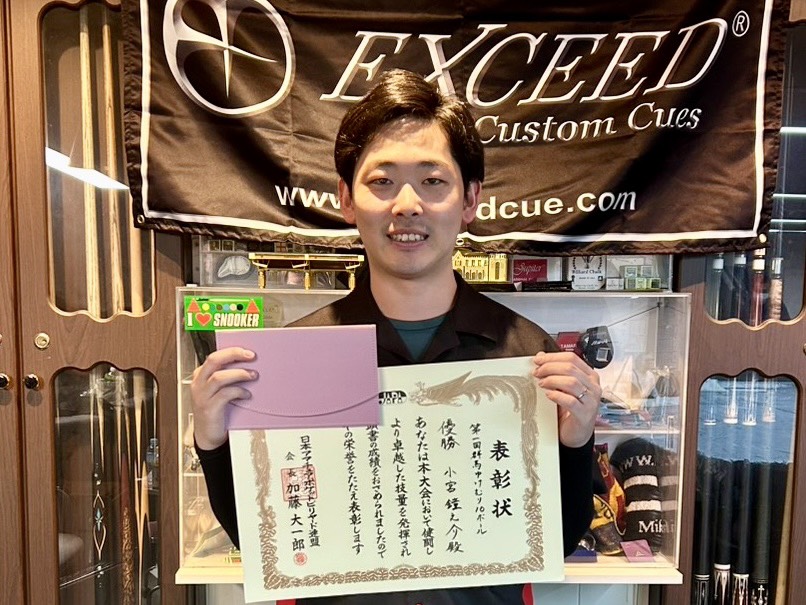 EXCEED®
Custom Cues
www. dcue.com
I ♥ SNOOKER
表彰状
第一回群馬申けむり10ボール
優勝 小宮鐘之介殿
あなたは本大会において健闘し
より卓越した技量を発揮され
頭書の成績をおさめられましたので
の栄誉をたたえ表彰します
日本アマチュアポケットビリヤード連盟
会長 加藤大一郎
JAPA
Jupiter
Billiard Chalk
TAMA
WWW.
Miki